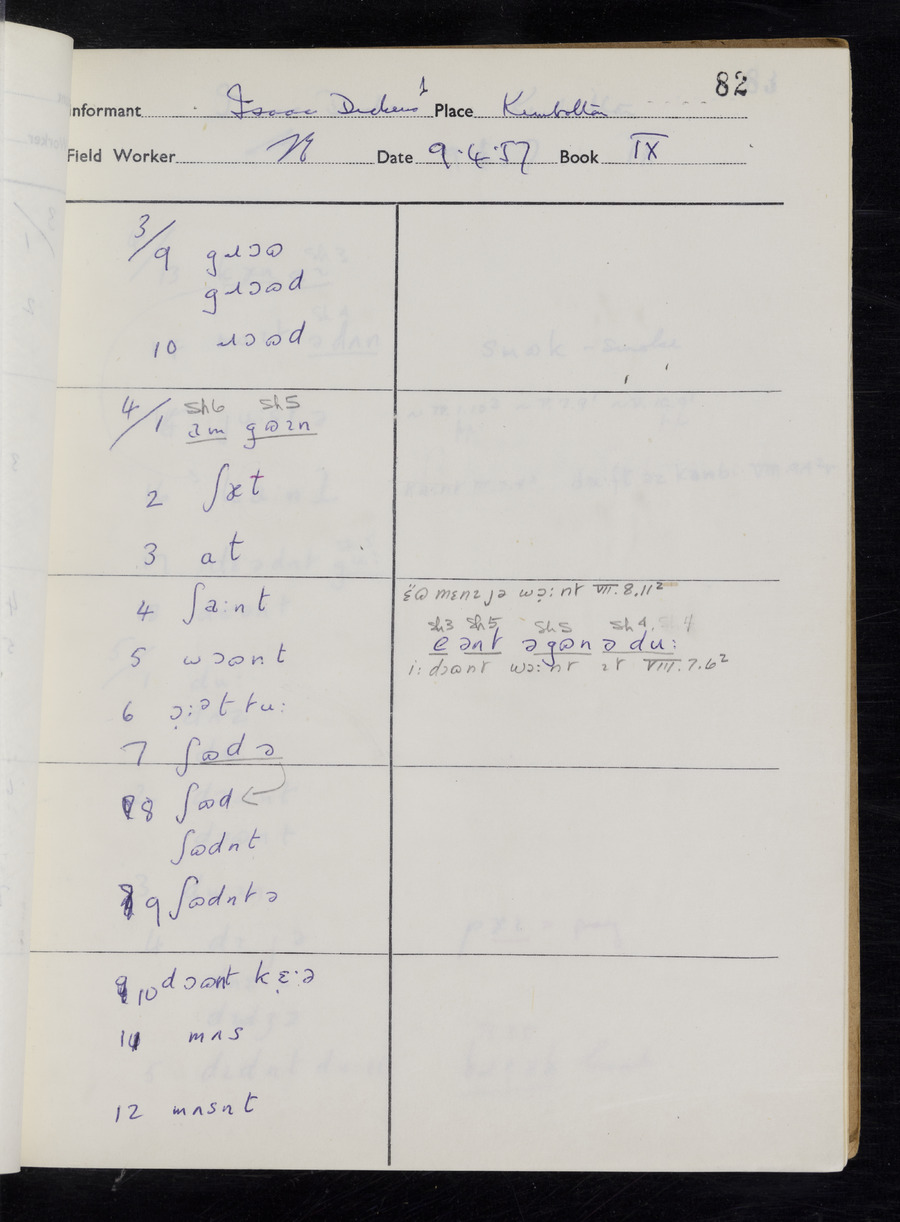 82
Informant Isaac Dickens 1 Place Kimbolton
Field Worker Date 9.4.57 Book IX
3/9 gɹɔɷ
gɹɔɷd
10 ɹɔɷd
4/1 sh6 sh5
am gɷɪn
2 ʃæt
3 at
4 ʃa:nt
5 wɔɷnt
6 ɔ:ət tu:
7 ʃɷd ə
8 ʃɷd
ʃɷdnt
9 ʃɷdnt ə
10 dɔɷnt kɛ:ə
11 mʌs
12 mʌsnt
wɔ:nt VII.8.11²
sh3 sh5 sh5 sh4
e ənt əgɷn ə du:
i: dɔɷnt wɔ:nt ɪt VIII.7.6²